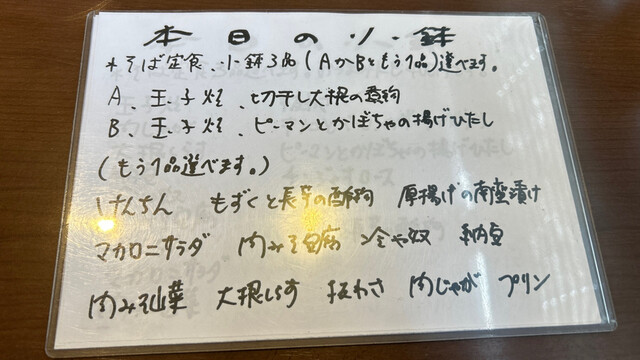 本日の小鉢
*そば定食、小鉢3品(AかBともう1品)選べます。
A、玉子焼、切干し大根の煮物
B、玉子焼、ピーマンとかぼちゃの揚げひたし
(もう1品選べます。)
けんちん もずくと長芋の酢物 厚揚げの南蛮漬け
マカロニサラダ 肉みそ豆腐 冷や奴 納豆
肉みそ山菜 大根しらす 板わさ 肉じゃが プリン